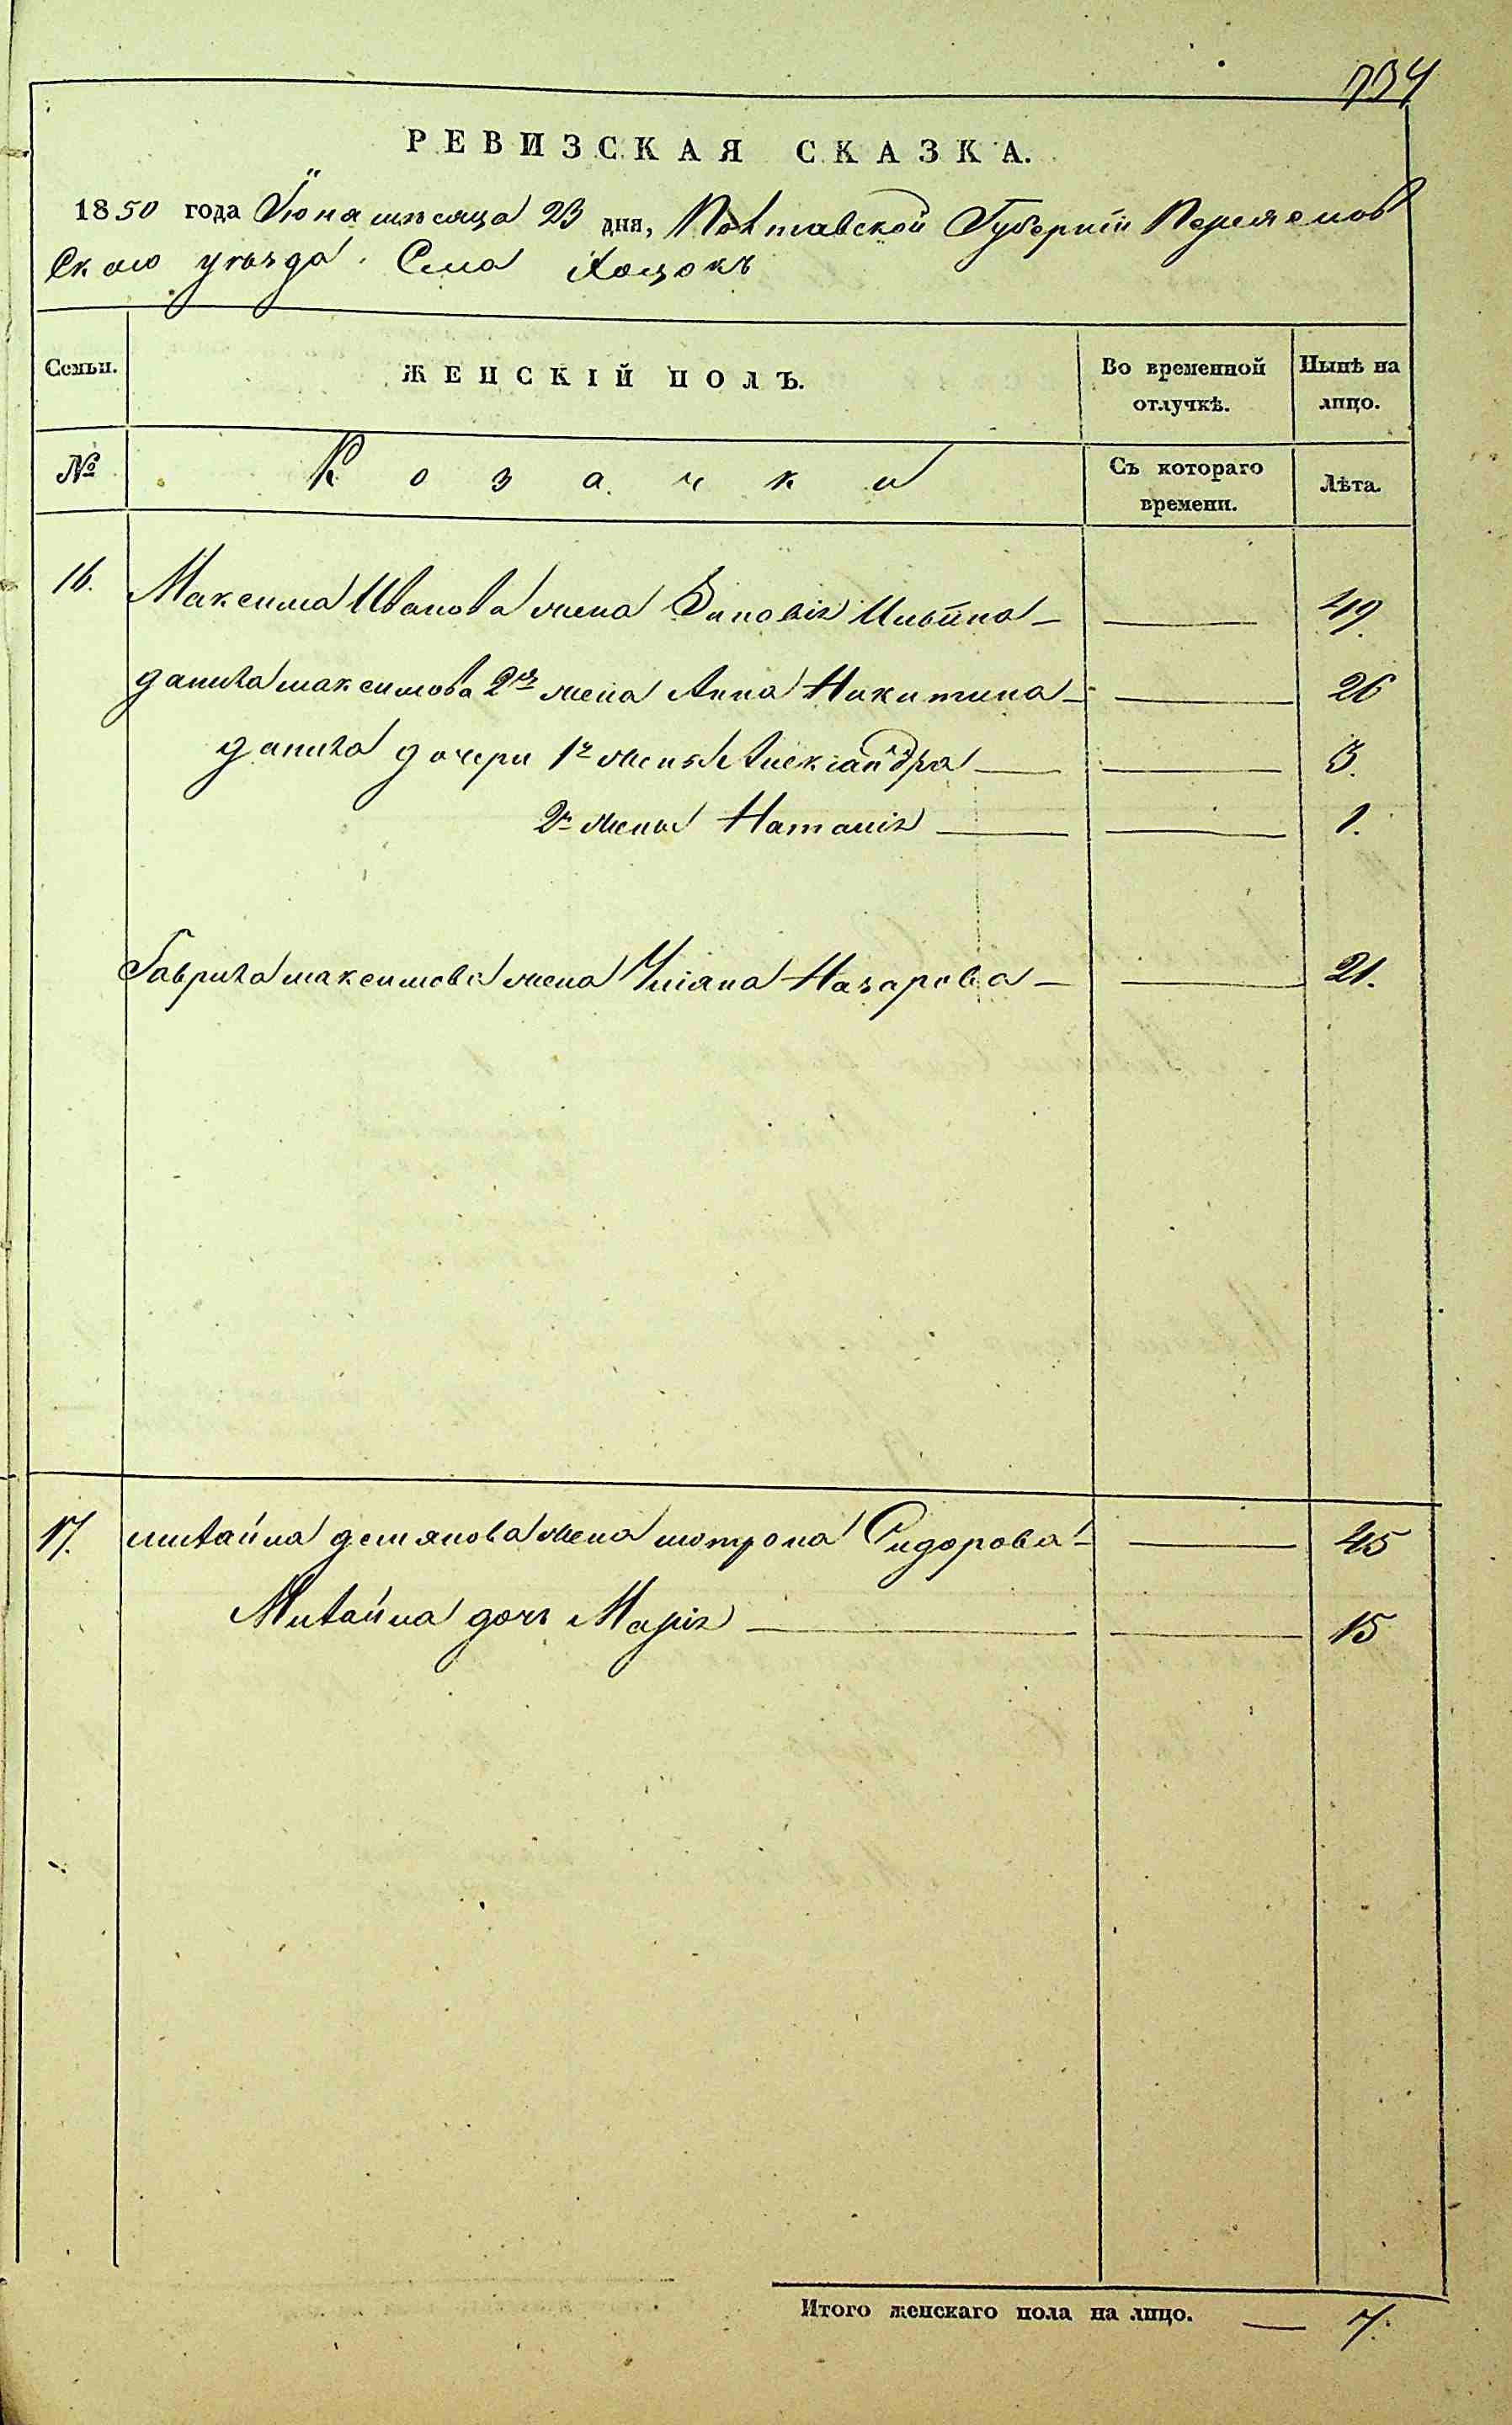 734
РЕВИЗСКАЯ СКАЗКА.
1850 года Іюня месяца 23 дня, Полтавской Губерніи Переяслов
Скаго уезда. Села Хоцокъ
Семьи.
ЖЕНСКІЙ ПОЛЪ.
Во временной отлучкѣ.
Нынѣ на лицо.
№
Козачки
Съ котораго времени.
Лѣта.
16. Максима Иванова жена Зиновія Ильина — — 49.
данила максимова 2я жена Анна Никитина — — 26
данила дочери 1й жены Александра — — 3.
2й жены Наталія — — 1.
Гаврила максимова жена Уліяна Назарова — — 21.
17. михайла демянова жена мотрона Сидорова — — 45
Михайла дочь Марія — — 15
Итого женскаго пола на лицо. — 7.